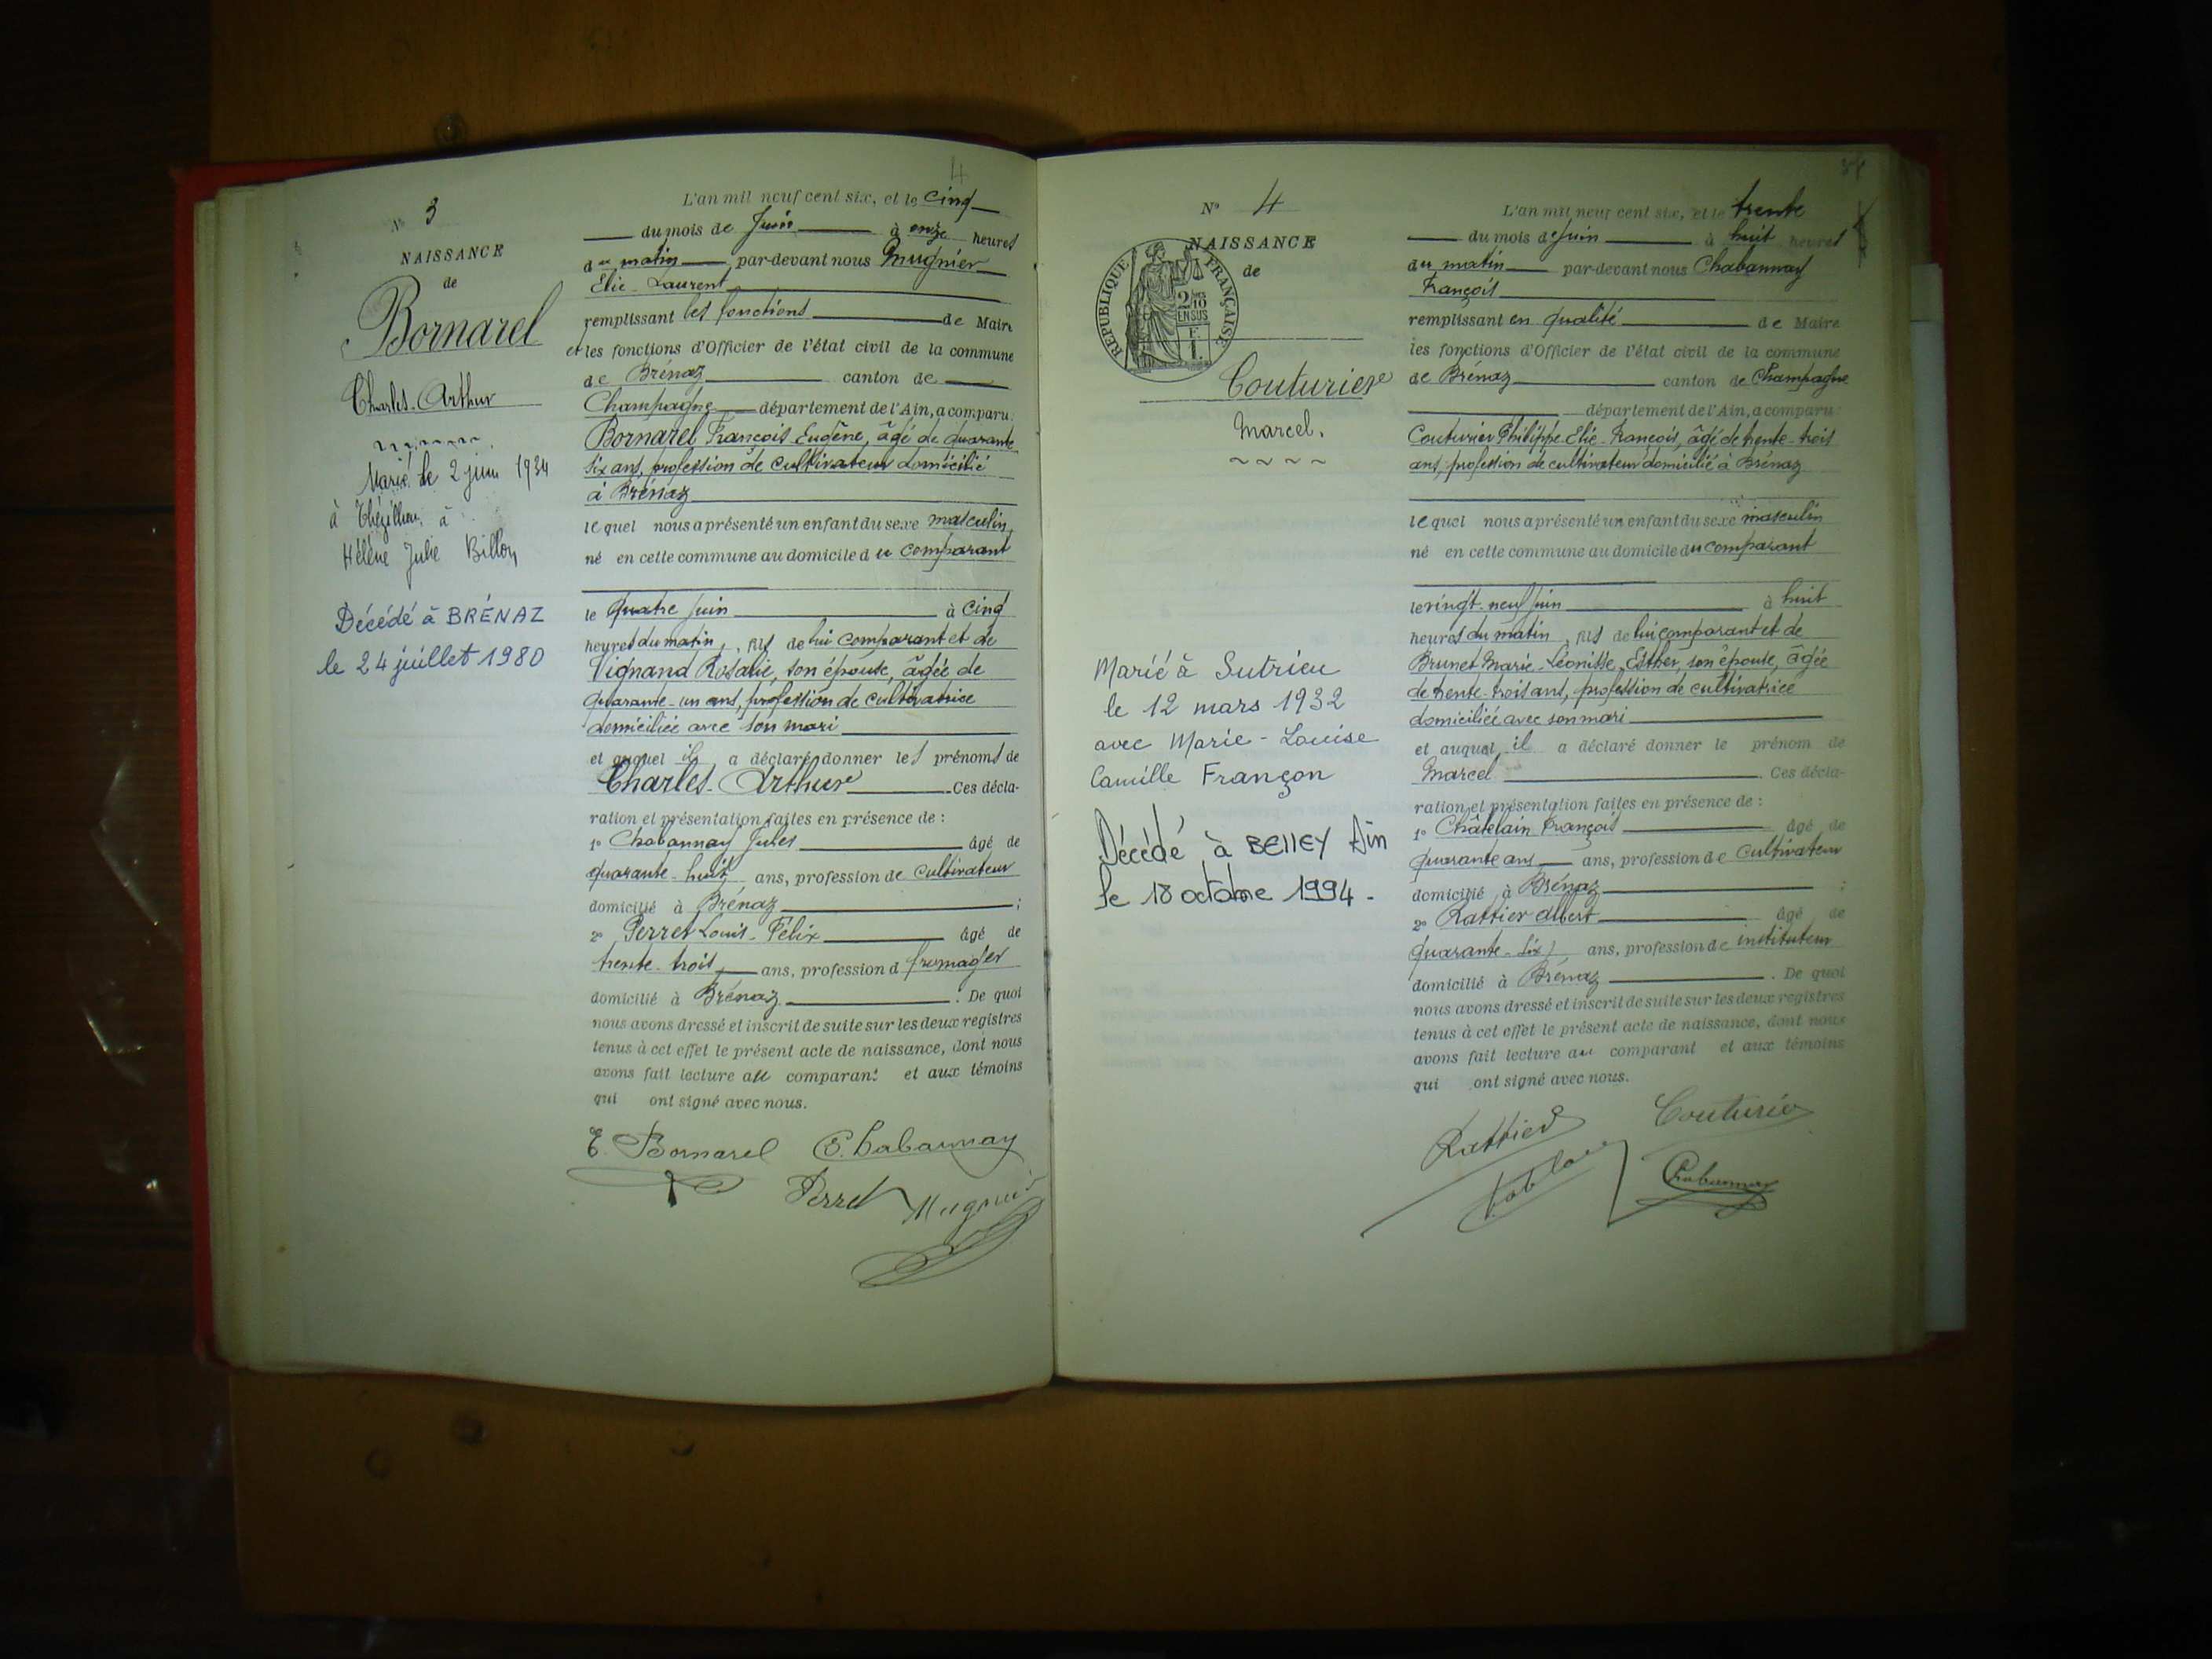 4
N° 3
NAISSANCE
de
Bornarel
Charles-Arthur
Marié le 2 juin 1934
à Thézillieu à
Hélène Julie Billon
Décédé à BRÉNAZ
le 24 juillet 1980
L'an mil neuf cent six, et le cinq
du mois de Juin à onze heures
du matin par-devant nous Mugnier
Elie-Laurent
remplissant les fonctions de Maire
et les fonctions d'Officier de l'état civil de la commune
de Brénaz canton de
Champagne département de l'Ain, a comparu:
Bornarel François-Eugène, âgé de quarante
six ans, profession de cultivateur domicilié
à Brénaz
lequel nous a présenté un enfant du sexe masculin,
né en cette commune au domicile du comparant
le quatre juin à cinq
heures du matin, fils de lui comparant et de
Vignand Rosalie, son épouse, âgée de
quarante-un ans, profession de cultivatrice
domiciliée avec son mari
et auquel il a déclaré donner les prénoms de
Charles-Arthur. Ces décla-
ration et présentation faites en présence de :
1° Chabannay Jules âgé de
quarante-huit ans, profession de cultivateur
domicilié à Brénaz ;
2° Perret Louis-Félix âgé de
trente-trois ans, profession d fromager
domicilié à Brénaz . De quoi
nous avons dressé et inscrit de suite sur les deux registres
tenus à cet effet le présent acte de naissance, dont nous
avons fait lecture au comparant et aux témoins
qui ont signé avec nous.
E. Bornarel Chabannay
Perret Mugnier
N° 4
NAISSANCE
de
RÉPUBLIQUE FRANÇAISE
2/10
EN SUS
Couturier
Marcel.
Marié à Sutrieu
le 12 mars 1932
avec Marie-Louise
Camille Françon
Décédé à BELLEY Ain
le 18 octobre 1994 -
L'an mil neuf cent six, et le trente
du mois de Juin à huit heures
du matin par-devant nous Chabannay
François
remplissant en qualité de Maire
les fonctions d'Officier de l'état civil de la commune
de Brénaz canton de Champagne
département de l'Ain, a comparu:
Couturier Philippe-Elie-François, âgé de trente-trois
ans, profession de cultivateur domicilié à Brénaz
lequel nous a présenté un enfant du sexe masculin
né en cette commune au domicile du comparant
le vingt-neuf juin à huit
heures du matin, fils de lui comparant et de
Brunet Marie-Léonisse-Esther, son épouse, âgée
de trente-trois ans, profession de cultivatrice
domiciliée avec son mari
et auquel il a déclaré donner le prénom de
Marcel . Ces décla-
ration et présentation faites en présence de :
1° Châtelain François âgé de
quarante ans ans, profession de cultivateur
domicilié à Brénaz ;
2° Rattier Albert âgé de
quarante-six ans, profession de instituteur
domicilié à Brénaz . De quoi
nous avons dressé et inscrit de suite sur les deux registres
tenus à cet effet le présent acte de naissance, dont nous
avons fait lecture au comparant et aux témoins
qui ont signé avec nous.
Rattier Couturier
Chabannay